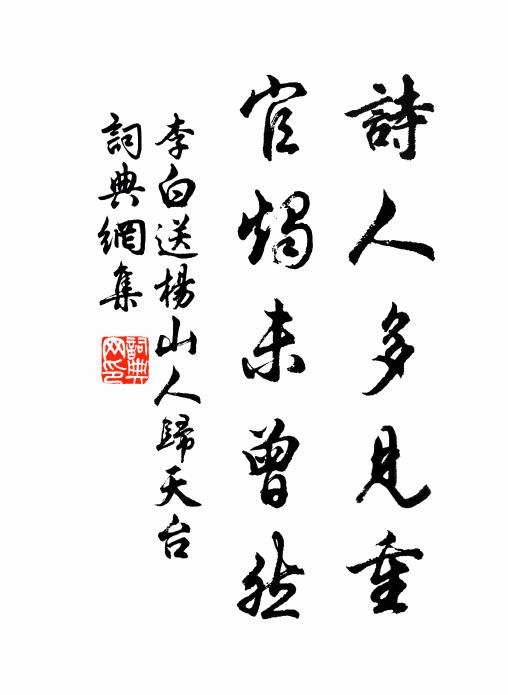 詩人多見重
官燭未曾然
李白送楊山人歸天台
詞典網集
詞典網印